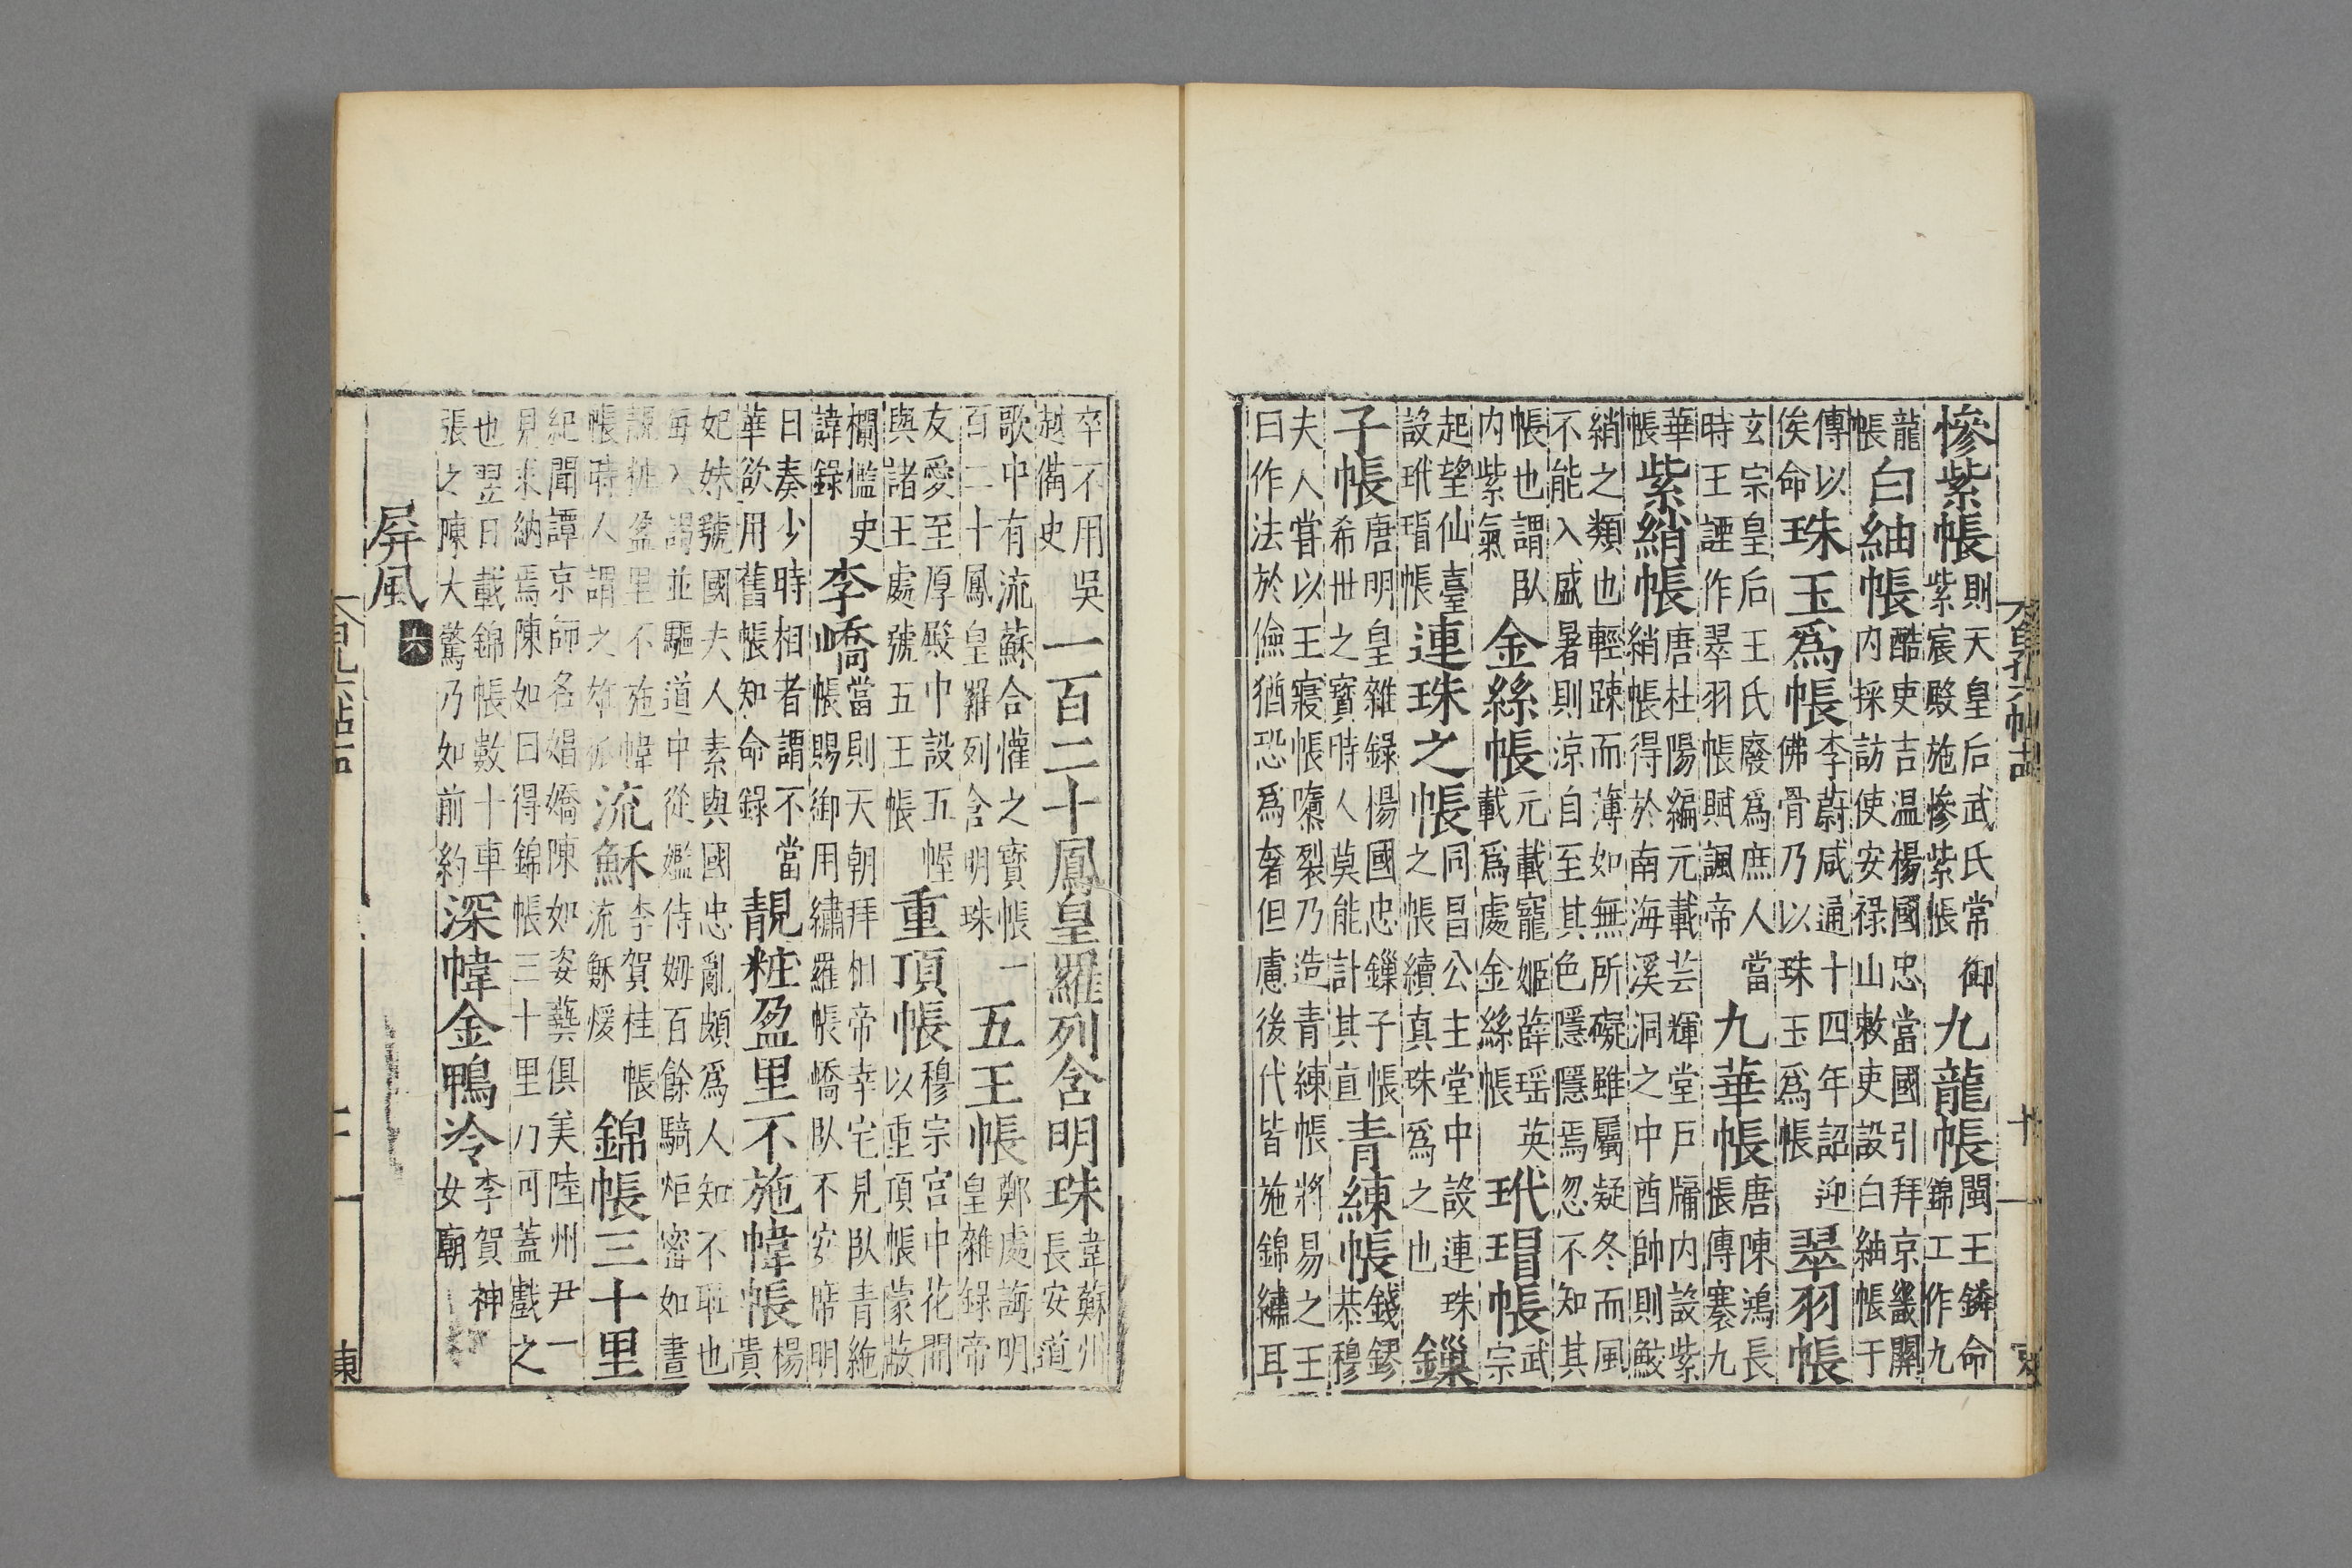 慘紫帳 則天皇后武氏常御 紫宸殿施慘紫帳 九龍帳 閩王鏻命 錦工作九
龍 帳 白紬帳 酷吏吉温楊國忠當國引拜京畿關 内採訪使安禄山敕吏設白紬帳于
傳以 俟命 珠玉爲帳 李蔚咸通十四年詔迎 佛骨乃以珠玉爲帳 翠羽帳
玄宗皇后王氏廢爲庶人當 時王諲作翠羽帳賦諷帝 九華帳 唐陳鴻長 悵傳褰九
華 帳 紫綃帳 唐杜陽編元載芸輝堂戸牖内設紫 綃帳得於南海溪洞之中酋帥則鮫
綃之類也輕踈而薄如無所礙雖屬疑冬而風 不能入盛暑則涼自至其色隱隱焉忽不知其
帳也謂臥 内紫氣 金絲帳 元載寵姬薛瑶英 載爲處金絲帳 玳瑁帳 武 宗
起望仙臺 設玳瑁帳 連珠之帳 同昌公主堂中設連珠 之帳續真珠爲之也 鏁
子帳 唐明皇雜録楊國忠鏁子帳 希世之寳時人莫能計其直 青練帳 錢鏐 恭穆
夫人嘗以王寢帳隳裂乃造青練帳將易之王 曰作法於儉猶恐爲奢但慮後代皆施錦繡耳
十一
卒不用吳 越備史 一百二十鳳皇羅列含明珠 韋蘇州 長安道
歌中有流蘇合懽之寳帳一 百二十鳳皇羅列含明珠 五王帳 鄭處誨明 皇雜録帝
友愛至厚殿中設五幄 與諸王處號五王帳 重頂帳 穆宗宫中花開 以重頂帳蒙蔽
欄檻史 諱録 李嶠 當則天朝拜相帝幸宅見臥青絁 帳賜御用繡羅帳嶠臥不安席明
日奏少時相者謂不當 華欲用舊帳知命録 靚粧盈里不施幃帳 楊 貴
妃妹號國夫人素與國忠亂頗爲人知不耻也 每入謁並驅道中從嫗侍姆百餘騎炬密如晝
靚粧盈里不施幃 帳時人謂之雄狐 流穌 李賀桂 帳 流穌煖 錦帳三十里
紀聞譚京師名娼嬌陳如姿藝俱美陸州尹一 見求納焉陳如曰得錦帳三十里乃可蓋戲之
也翌日載錦帳數十車 張之陳大驚乃如前約 深幃金鴨冷 李賀神 女廟
屏風 六
東